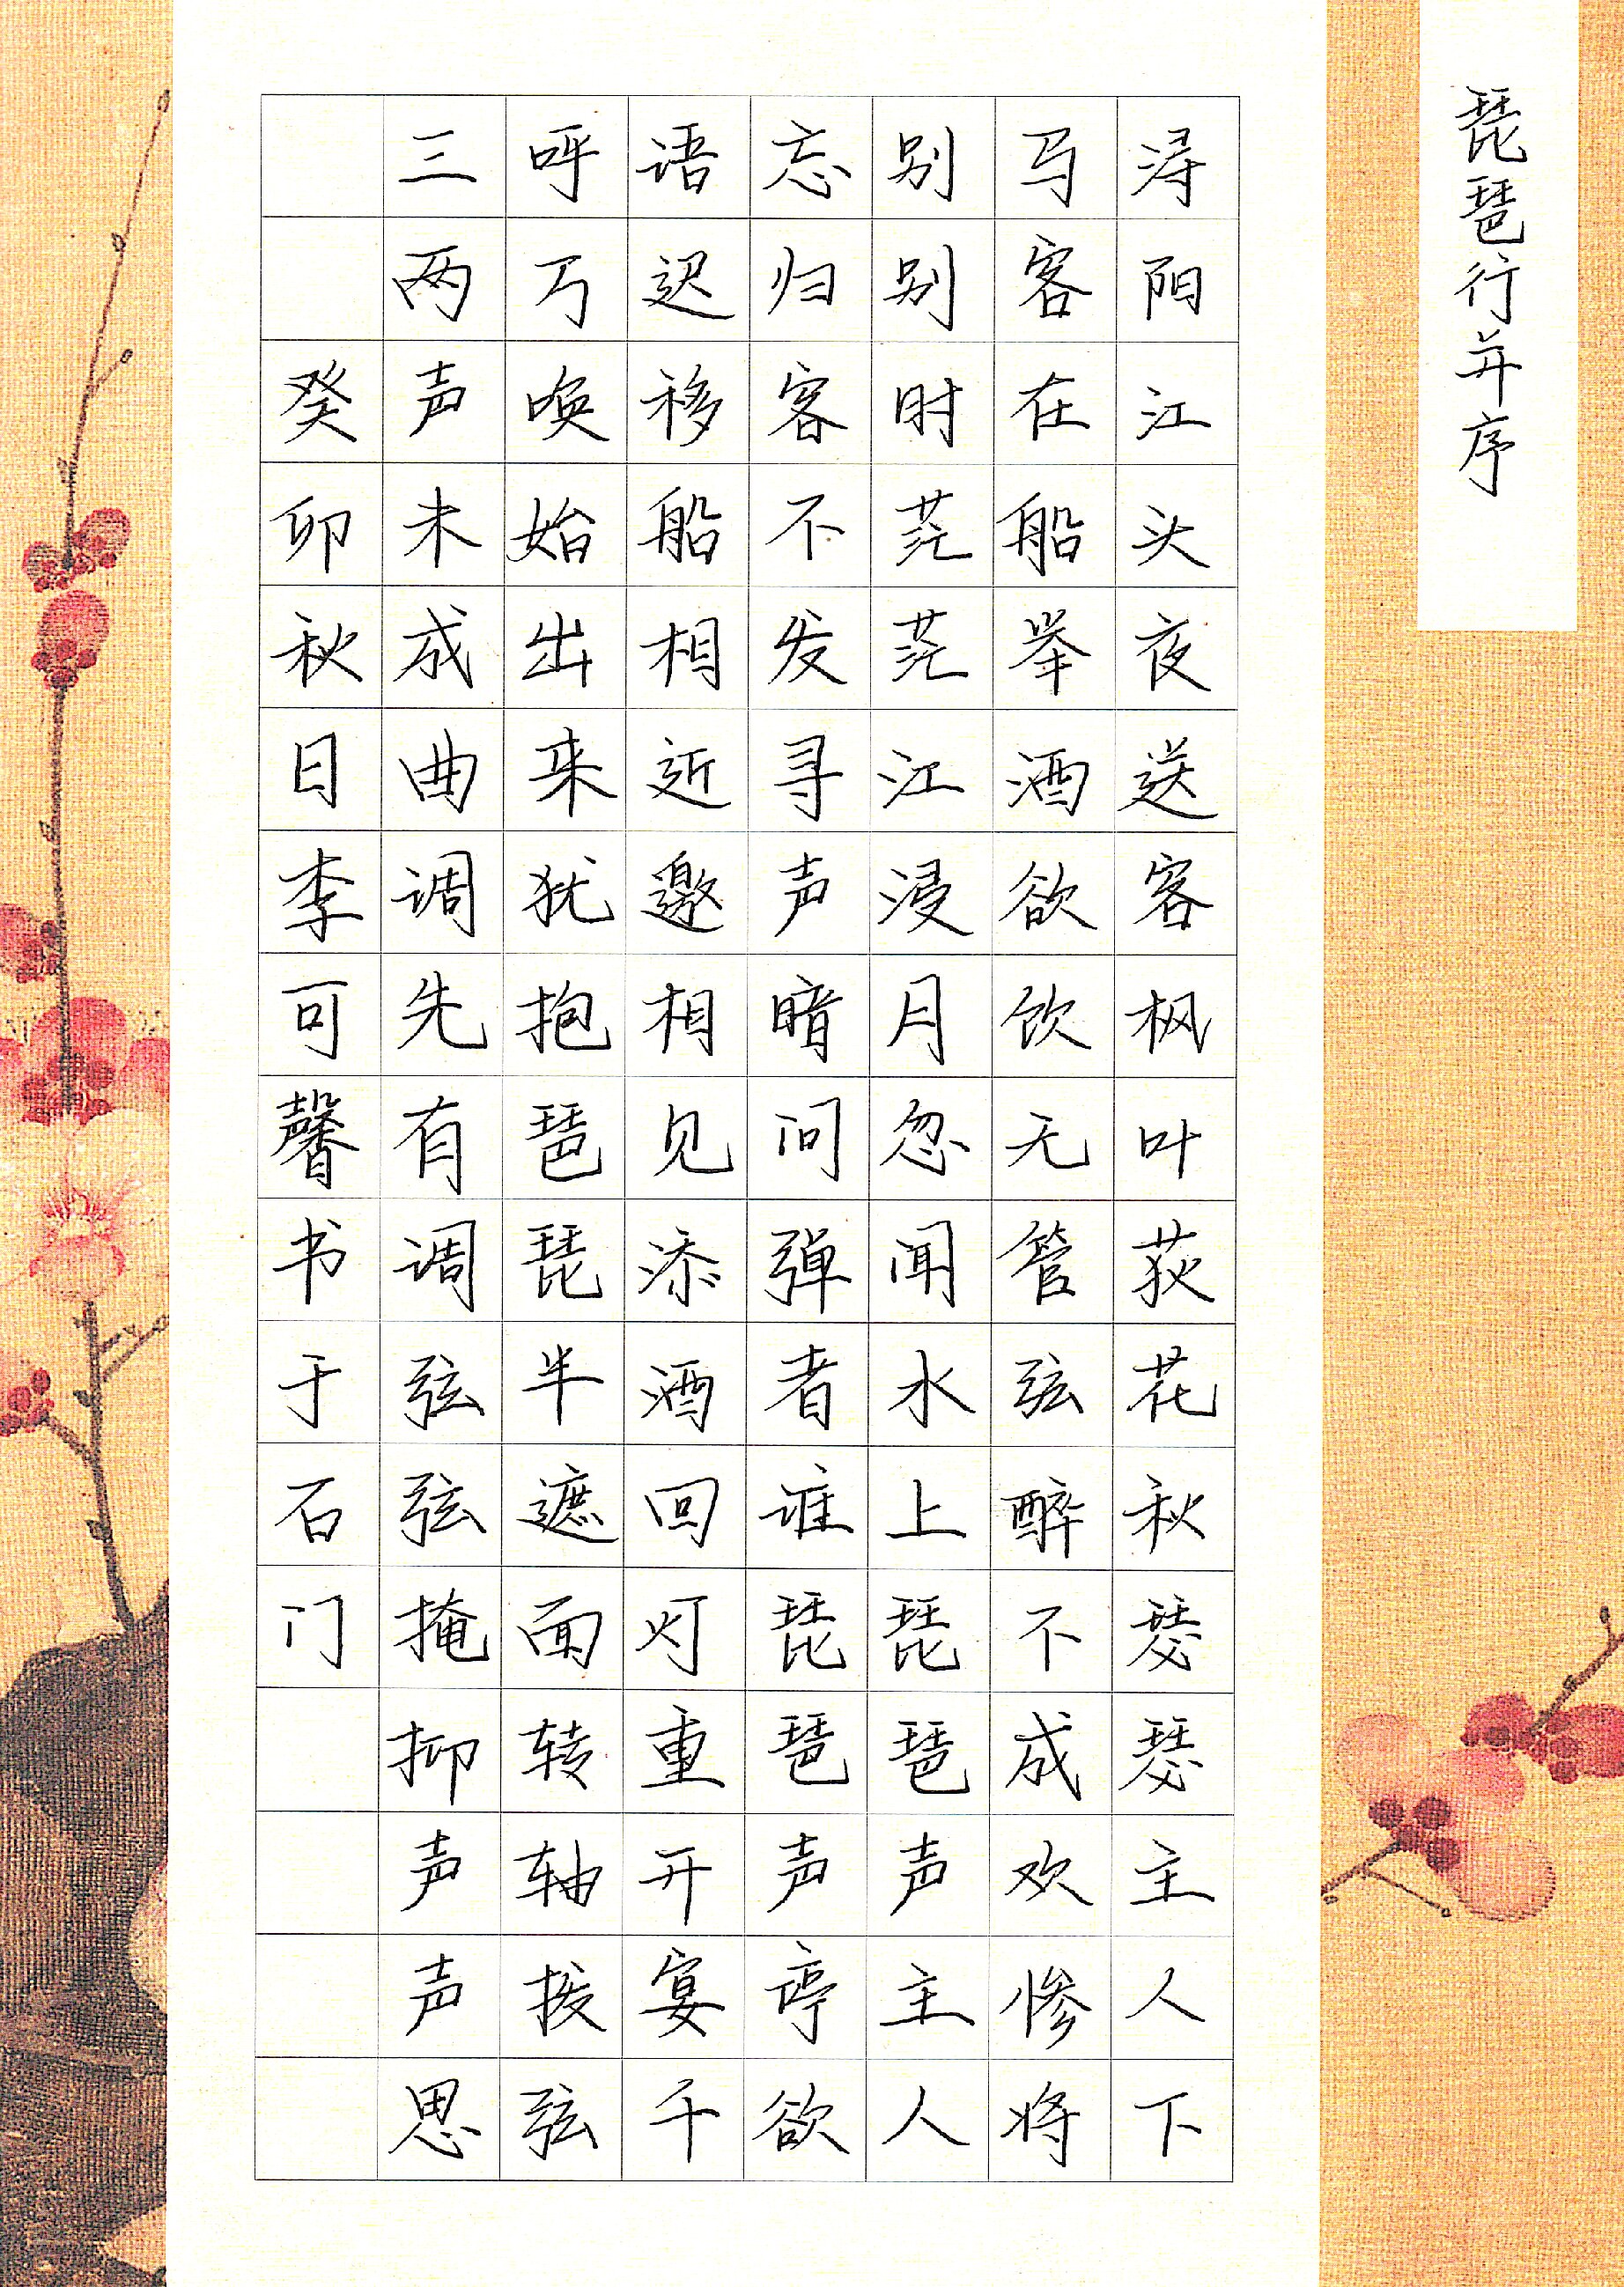 琵琶行并序
浔阳江头夜送客枫叶荻花秋瑟瑟主人下
马客在船举酒欲饮无管弦醉不成欢惨将
别别时茫茫江浸月忽闻水上琵琶声主人
忘归客不发寻声暗问弹者谁琵琶声停欲
语迟移船相近邀相见添酒回灯重开宴千
呼万唤始出来犹抱琶琵半遮面转轴拨弦
三两声未成曲调先有调弦弦掩抑声声思
癸卯秋日李可馨书于石门